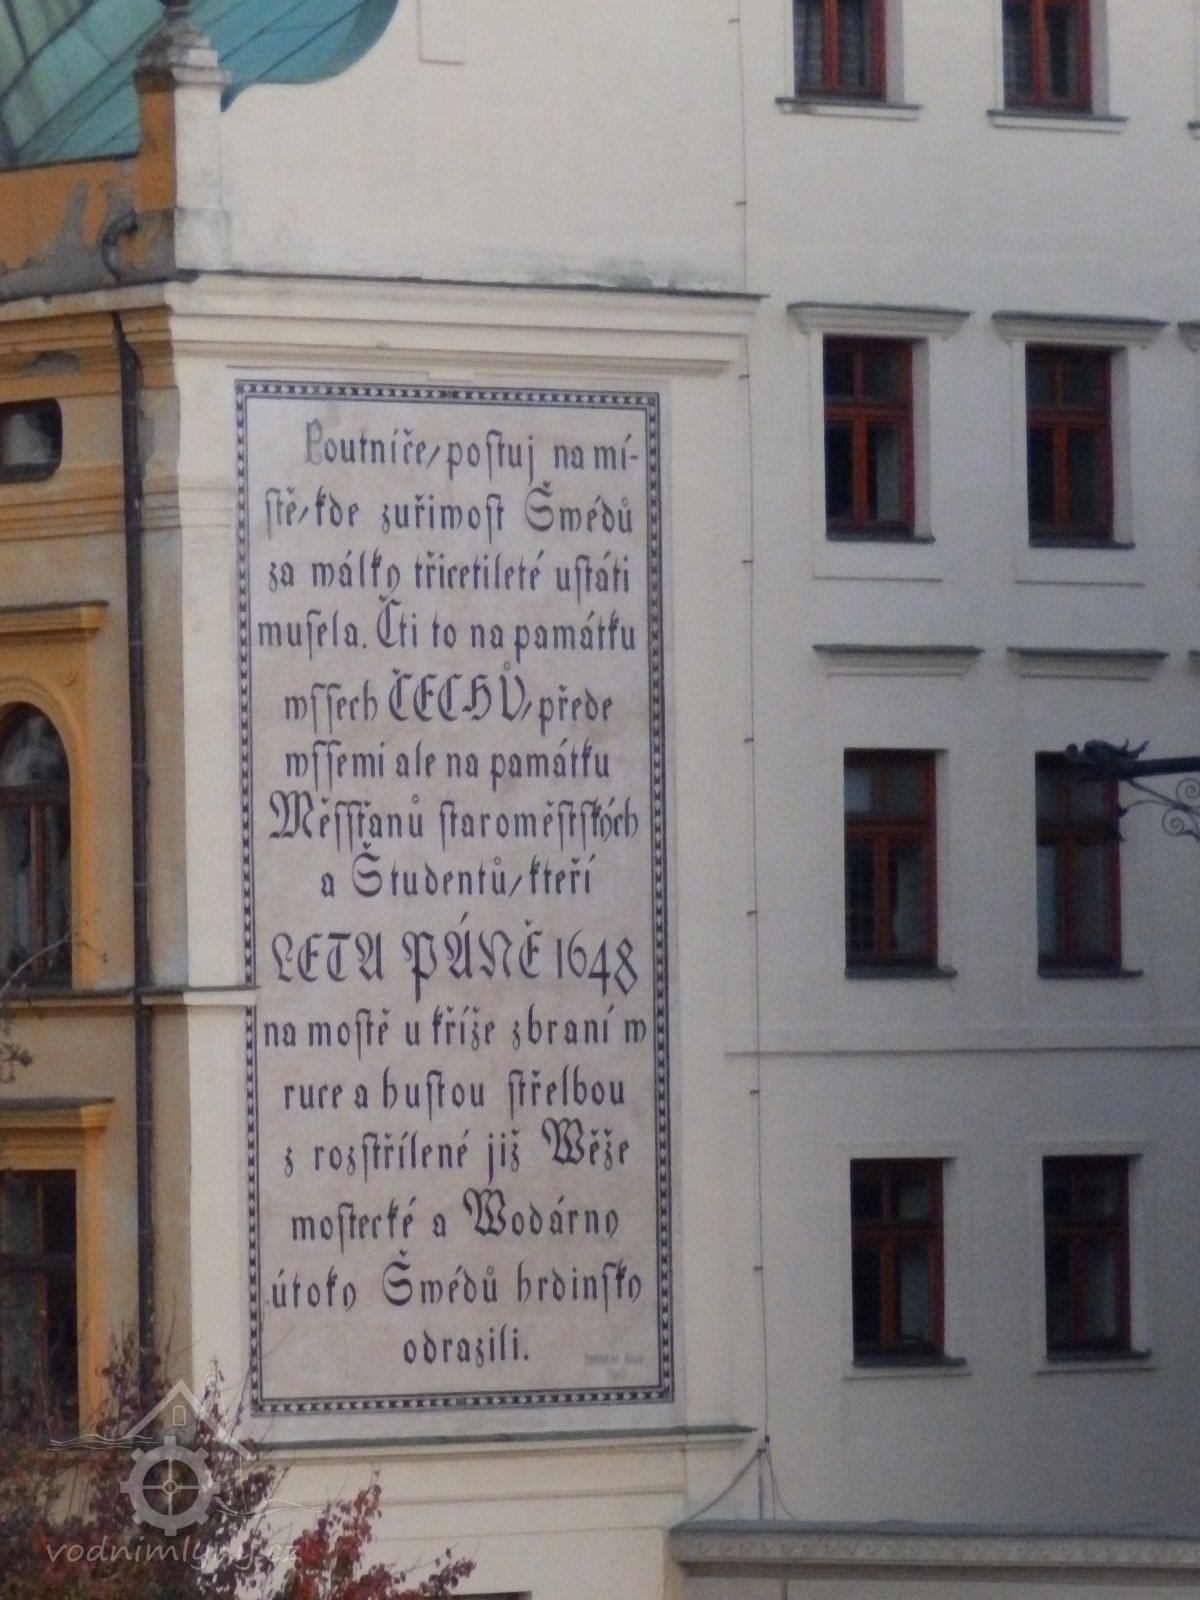 Poutníče, postuj na mí-
stě, kde zuřiwost Šwédů
za wálky třicetileté ustáti
musela. Čti to na památku
wssech ČECHŮ, přede
wssemi ale na památku
Měssťanů staroměstských
a Študentů, kteří
LETA PÁNĚ 1648
na mostě u kříže zbraní w
ruce a hustou střelbou
z rozstřílené již Wěže
mostecké a Wodárny
útoky Šwédů hrdinsky
odrazili.
vodnimlyny.cz